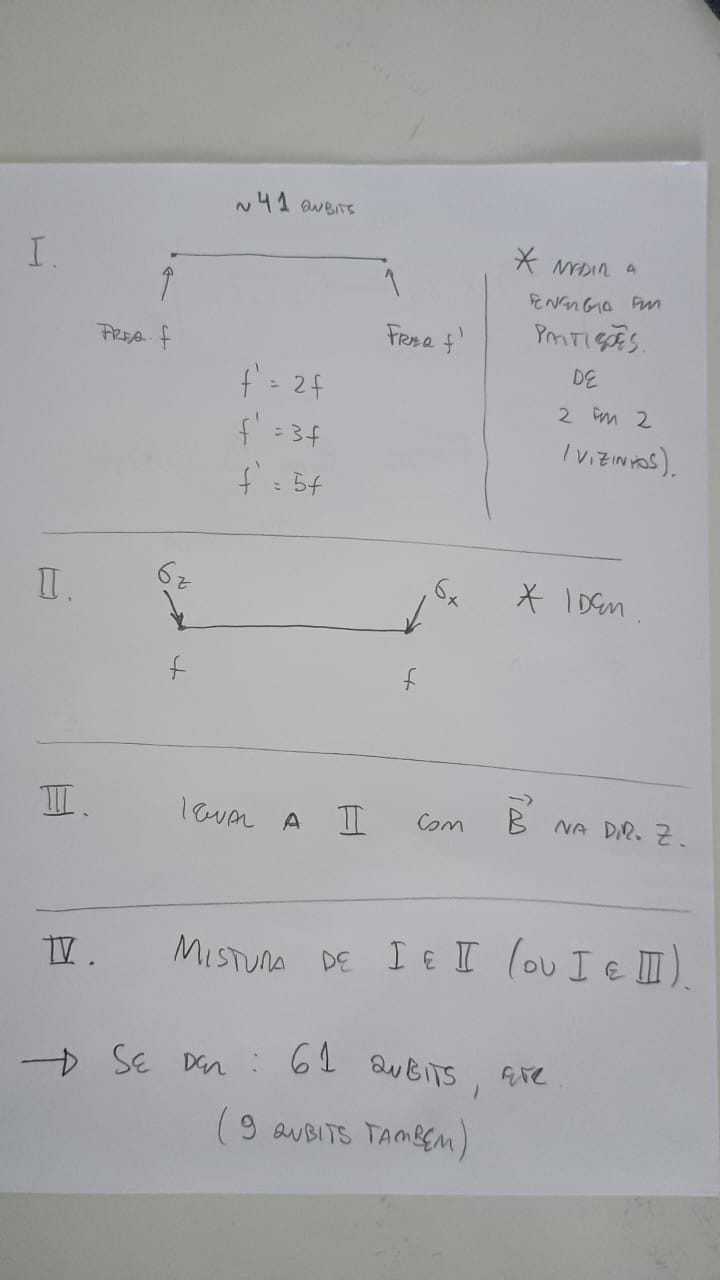 ~41 QUBITS
I.
FREQ. f
FREQ f'
f' = 2f
f' = 3f
f' = 5f
* MEDIR A
ENERGIA EM
PARTIÇÕES.
DE
2 EM 2
(VIZINHOS).
II.
σz
σx
* IDEM.
f
f
III. IGUAL A II COM B⃗ NA DIR. Z.
IV. MISTURA DE I E II (OU I E III).
→ SE DER : 61 QUBITS, ETC.
(9 QUBITS TAMBÉM)